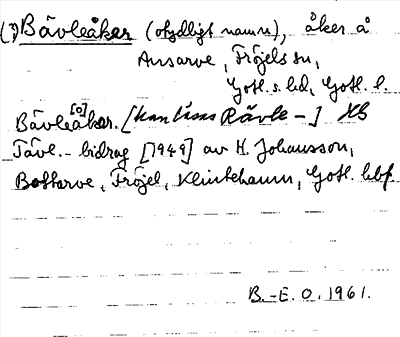 (?) Bävleåker (otydligt namn), åker å
Ansarve, Fröjels sn,
Gotl. s. hd, Gotl. l.
Bävle[o]åker. [kan läsas Rävle-] HS
Tävl.-bidrag [1949] av H. Johansson,
Bottarve, Fröjel, Klintehamn, Gotl. hbf
B.-E. O. 1961.